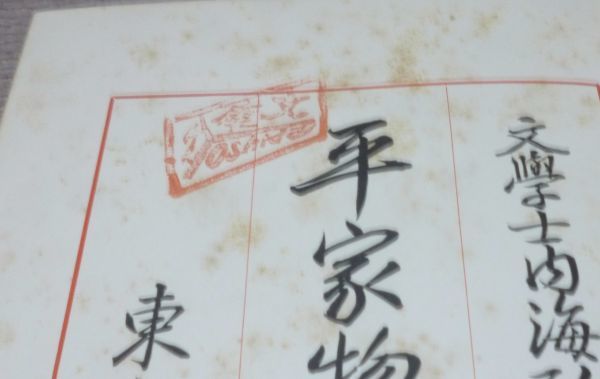 文學士内海
平家物
東